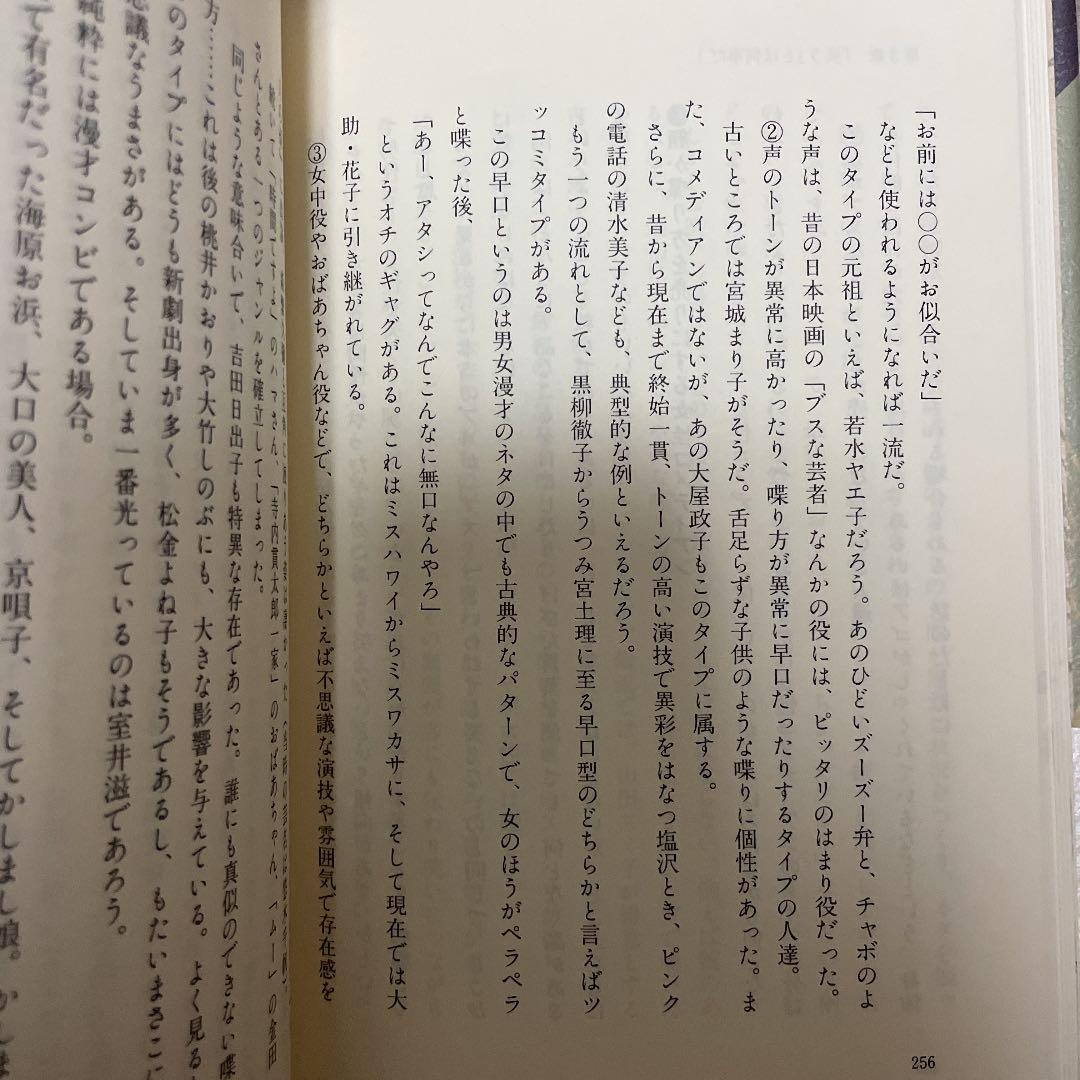 「お前には〇〇がお似合いだ」
などと使われるようになれば一流だ。
このタイプの元祖といえば、若水ヤエ子だろう。あのひどいズーズー弁と、チャボのよ
うな声は、昔の日本映画の「ブスな芸者」なんかの役には、ピッタリのはまり役だった。
②声のトーンが異常に高かったり、喋り方が異常に早口だったりするタイプの人達。
古いところでは宮城まり子がそうだ。舌足らずな子供のような喋りに個性があった。ま
た、コメディアンではないが、あの大屋政子もこのタイプに属する。
さらに、昔から現在まで終始一貫、トーンの高い演技で異彩をはなつ塩沢とき、ピンク
の電話の清水美子なども、典型的な例といえるだろう。
もう一つの流れとして、黒柳徹子からうつみ宮土理に至る早口型のどちらかと言えばツ
ッコミタイプがある。
この早口というのは男女漫才のネタの中でも古典的なパターンで、女のほうがペラペラ
と喋った後、
「あー、アタシってなんでこんなに無口なんやろ」
というオチのギャグがある。これはミスハワイからミスワカサに、そして現在では大
助・花子に引き継がれている。
③女中役やおばあちゃん役などで、どちらかといえば不思議な演技や雰囲気で存在感を
256
「時間ですよ」のハマさん、「寺内貫太郎一家」のおばあちゃん、「ムー」の金田
さんとある一つのジャンルを確立してしまった。
同じような意味合いで、吉田日出子も特異な存在であった。誰にも真似のできない喋
方……これは後の桃井かおりや大竹しのぶにも、大きな影響を与えている。よく見る
のタイプにはどうも新劇出身が多く、松金よね子もそうであるし、もたいまさこに
思議なうまさがある。そしていま一番光っているのは室井滋であろう。
純粋には漫才コンビである場合。
て有名だった海原お浜、大口の美人、京唄子、そしてかしまし娘。かしま